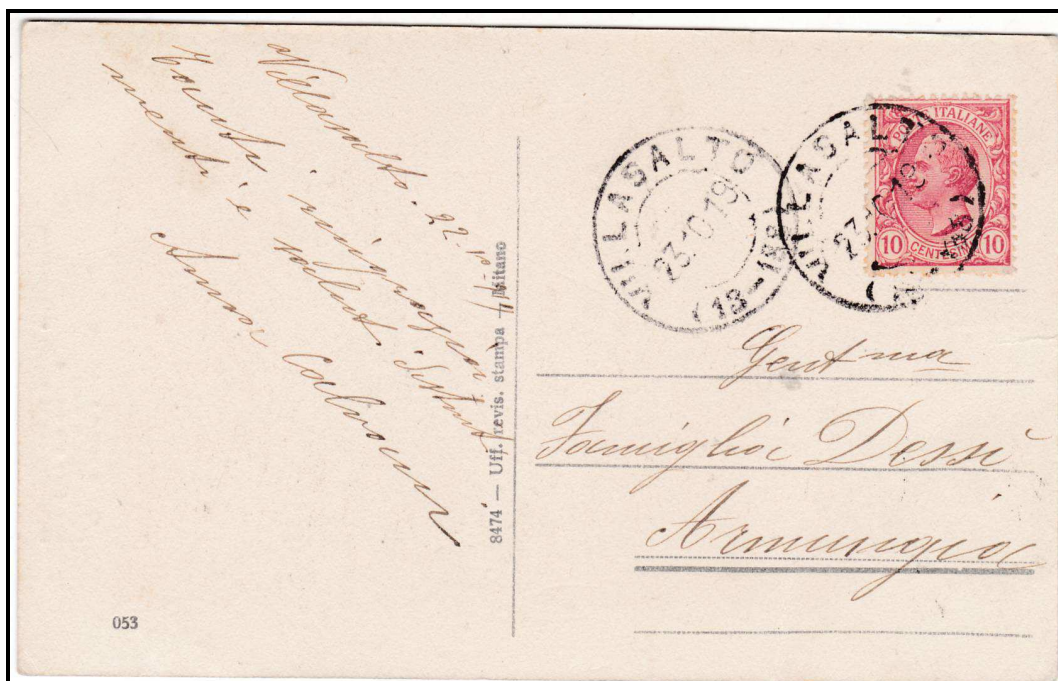 Villasalto. 22-10-19
Tanti ringrazia
menti e salut. distinti
Anna
8474 — Uff. revis. stampa — Milano
053
VILLASALTO
23.10.19
(18-188)
VILLASALTO
23.10.19
POSTE ITALIANE
10 CENTESIMI 10
Gentma
Famiglia Dessì
Armungia